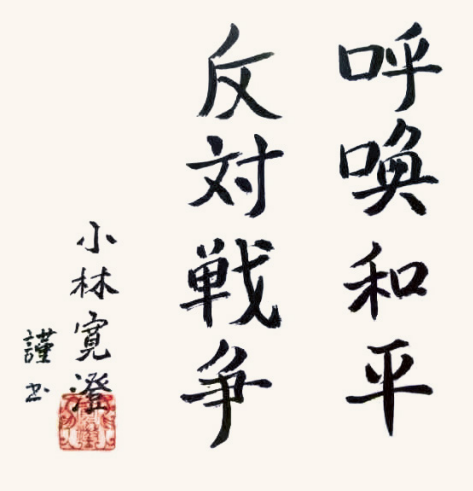 呼喚和平
反対戦争
小林寛澄
謹书